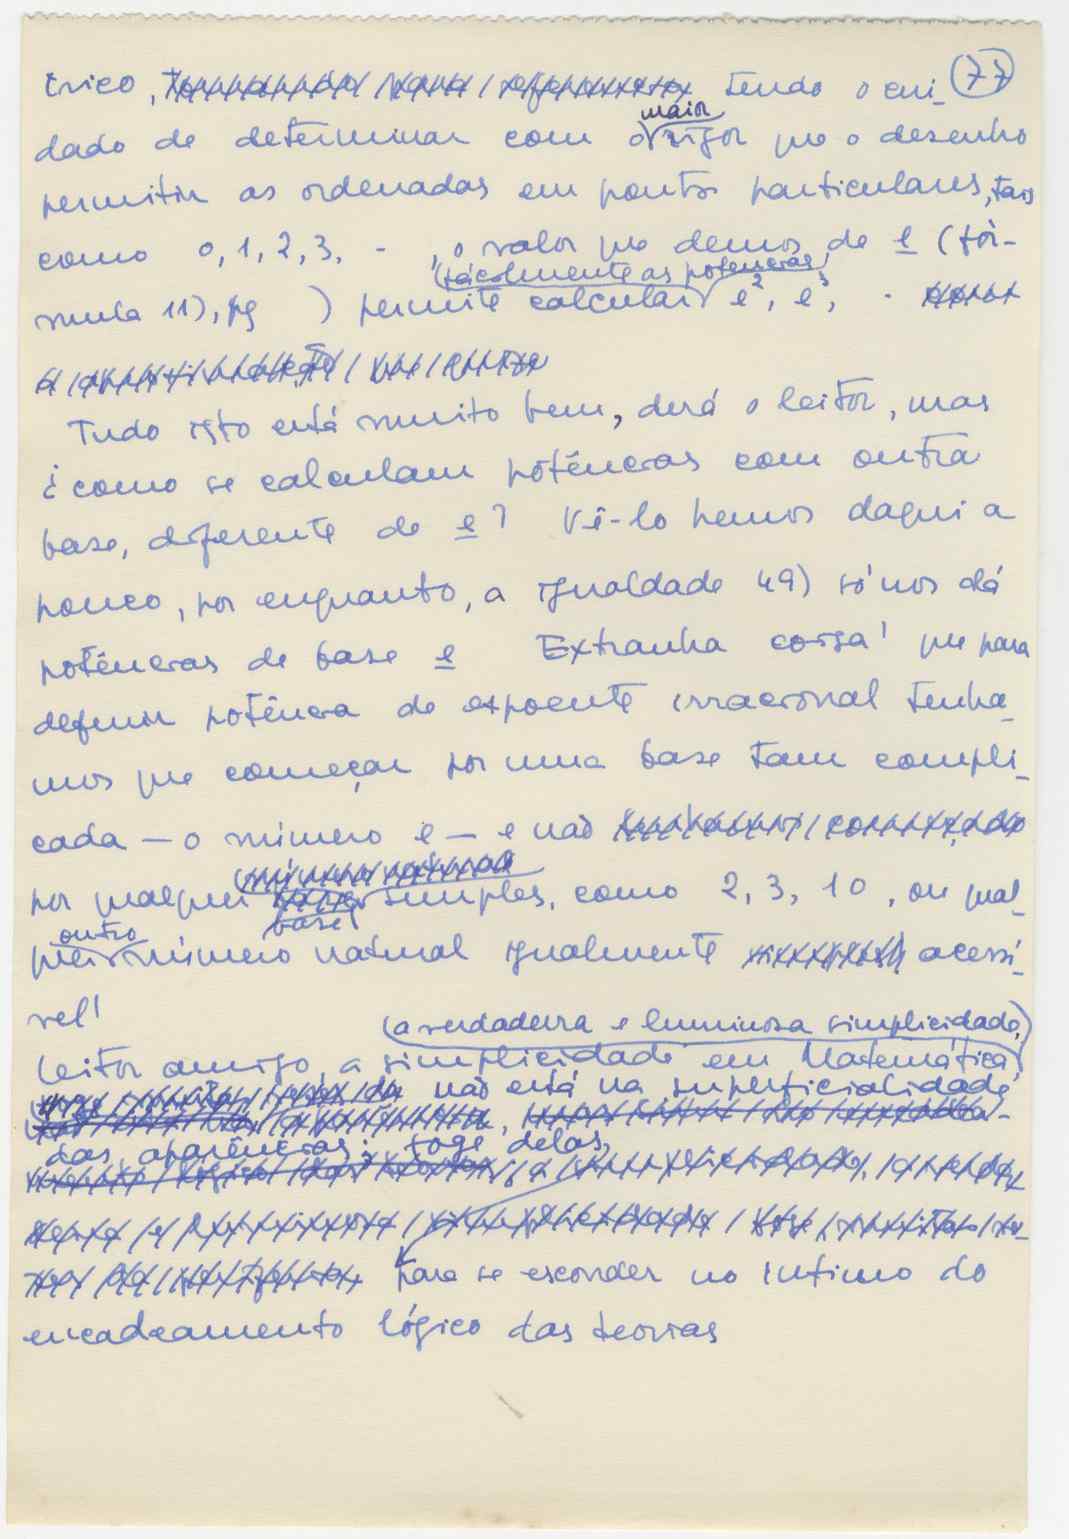 trico, tendo o cui- (77)
dado de determinar com o maior rigor que o desenho
permitir as ordenadas em pontos particulares, tais
como 0, 1, 2, 3, - , o valor que demos de e (fór-
mula 11), pg ) permite calcular (fàcilmente as potencias) e², e³, .
Tudo isto está muito bem, dirá o leitor, mas
¿como se calculam potências com outra
base, diferente de e? Vê-lo hemos daqui a
pouco, por enquanto, a igualdade 49) só nos dá
potências de base e Extranha coisa! que para
definir potência de expoente irracional tenha-
mos que começar por uma base tam compli-
cada — o número e — e não
por qualquer base simples, como 2, 3, 10, ou qual-
quer outro número natural igualmente acessí-
vel!
(a verdadeira e luminosa simplicidade,)
Leitor amigo, a simplicidade em Matemática
não está na superficialidade
das aparências; foge delas,
para se esconder no intimo do
encadeamento lógico das teorias